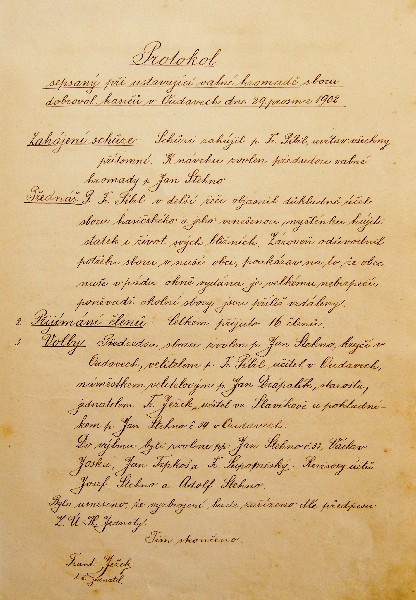 Protokol
sepsaný při ustavující valné hromadě sboru
dobrovol. hasičů v Oudavech dne 29. prosince 1902.
Zahájení schůze. Schůzi zahájil p. F. Pibil, uvítav všechny
přítomné. K návrhu zvolen předsedou valné
hromady p. Jan Stehno
Přednáš. P. F. Pibil v delší řeči objasnil důkladně účel
sboru hasičského a jeho vznešenou myšlenku hájiti
statek i život svých bližních. Zároveň odůvodnil
potřebu sboru v naší obci, poukázav na to, že obec
naše v pádu ohně vydána je velkému nebezpečí
poněvadž okolní sbory jsou příliš vzdáleny.
2. Přijímání členů Celkem přijato 16 členů.
3. Volby Předsedou sboru zvolen p. Jan Stehno, krejčí v
Oudavech, velitelem p. F. Pibil, učitel v Oudavech,
náměstkem velitelovým p. Jan Drapalík, starosta,
jednatelem F. Ježek, učitel ve Slavíkově a pokladní-
kem p. Jan Stehno č. 34 v Oudavech.
Do výboru byli zvoleni pp. Jan Stehno č. 37, Václav
Jan a F. Revisory účtů
Josef Stehno a Adolf Stehno.
Bylo usneseno, že vyzbrojení bude zařízeno dle předpisu
Z. Ú. H. Jednoty.
Tím skončeno.
Frant. Ježek
t. č. jednatel.